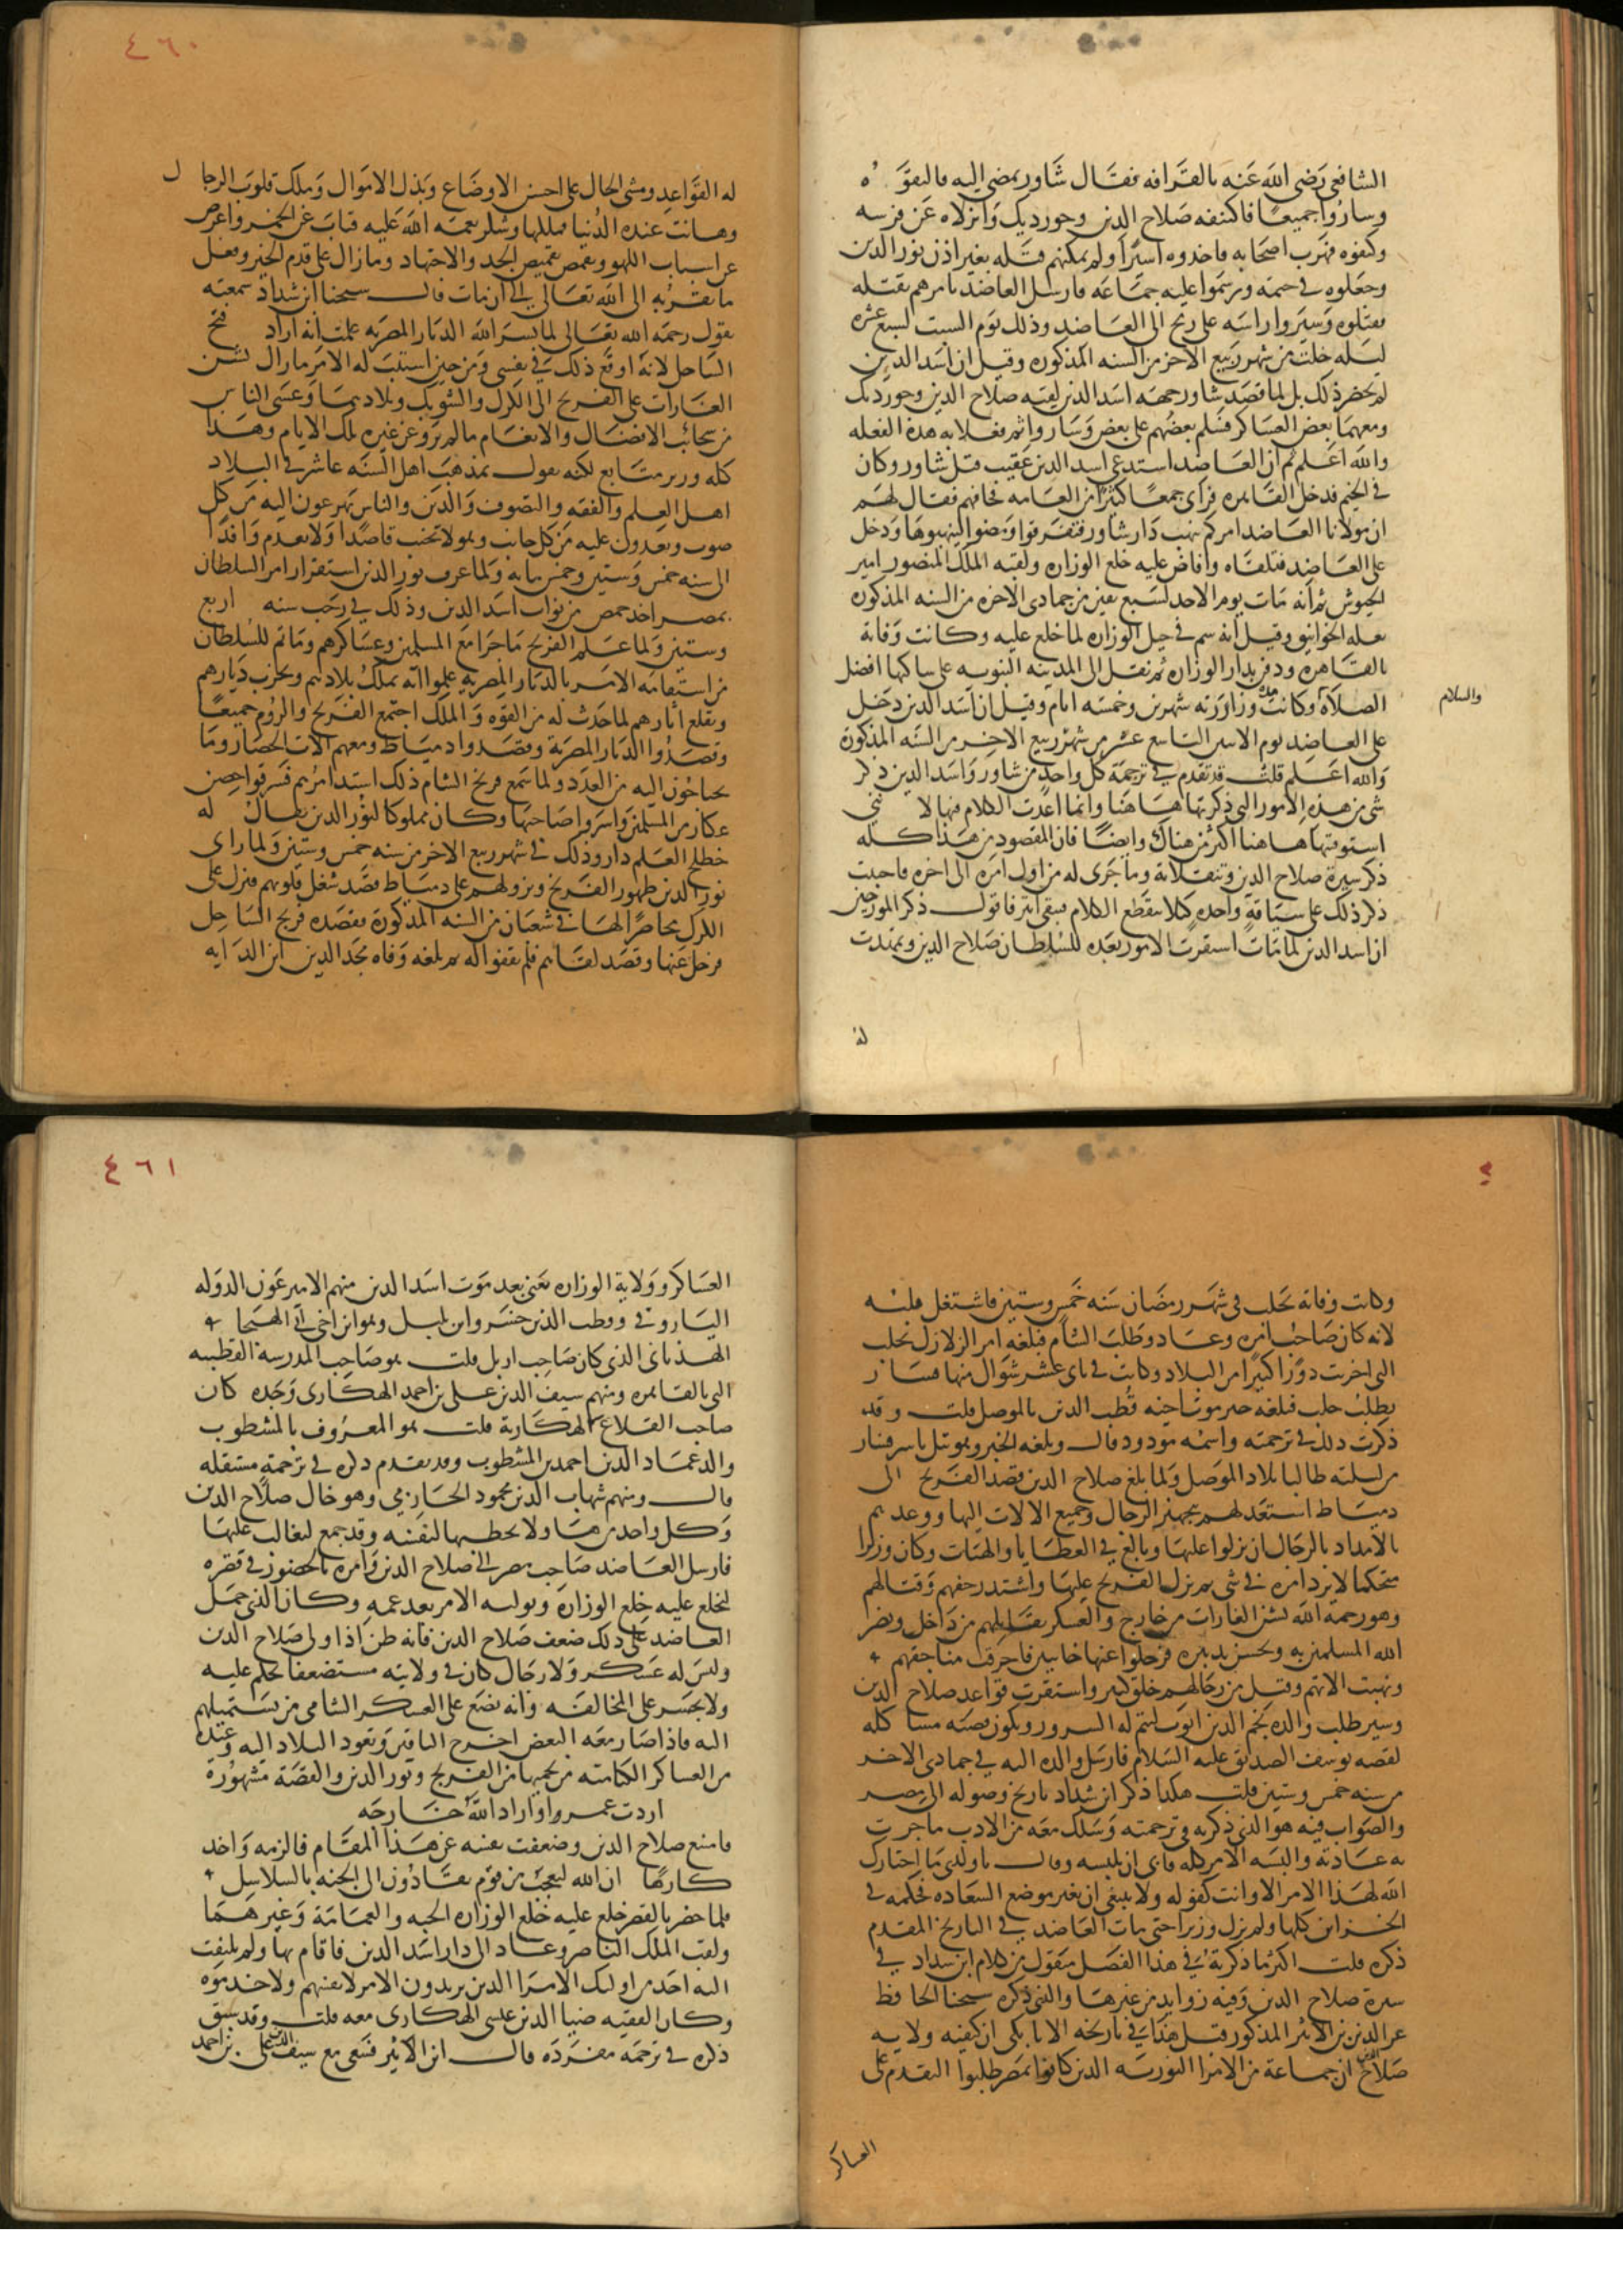 الشافعي رضي الله عنه بالقرافه فقال شاور نمضي اليه فالتقوه
وساروا جميعًا فاكتنفه صلاح الدين وجورديك وانزلاه عن فرسه
وكتفوه فهرب اصحابه فاخذوه اسيرًا ولم يمكنهم قتله بغير اذن نور الدين
وجعلوه في خيمه ورسموا عليه جماعه فارسل العاضد يامرهم بقتله
فقتلوه وسيروا راسه على رمح الى العاضد وذلك يوم السبت لسبع عشره
ليله خلت من شهر ربيع الاخر من السنه المذكوره وقيل ان اسد الدين
لم يحضر ذلك بل لما قصد شاور جهه اسد الدين لقيه صلاح الدين وجورديك
ومعهما بعض العساكر فسلم بعضهم على بعض وساروا ثم فعلا به هذه الفعله
والله اعلم ثم ان العاضد استدعى اسد الدين عقيب قتل شاور وكان
في الخيم فدخل القاهره فراى جمعًا كثيرًا من العامه فخافهم فقال لهم
ان مولانا العاضد امركم بنهب دار شاور فتفرقوا ومضوا اليه نهبوها ودخل
على العاضد فتلقاه وافاض عليه خلع الوزاره ولقبه الملك المنصور امير
الجيوش ثم انه مات يوم الاحد لسبع بقين من جمادى الاخره من السنه المذكوره
بعله الخوانيق وقيل انه سم في حيل الوزاره لما خلع عليه وكانت وفاته
بالقاهره ودفن بدار الوزاره ثم نقل الى المدينه النبويه على ساكنها افضل
الصلاة وكانت مدة وزاورته شهرين وخمسه ايام وقيل ان اسد الدين دخل
والسلام
على العاضد يوم الاثنين التاسع عشر من شهر ربيع الاخر من السنه المذكورة
والله اعلم قلت قد تقدم في ترجمة كل واحد من شاور واسد الدين ذكر
شي من هذه الامور التي ذكرتها هاهنا وانما اعدت الكلام فيها لا نني
استوفيتها هاهنا اكثر من هناك وايضًا فان المقصود من هذا كله
ذكر سيرة صلاح الدين وتنقلاته وما جرى له من اول امره الى اخره فاحببت
ذكر ذلك على سياقة واحده كيلا ينقطع الكلام فيبقى ابتر فاقول ذكر المورخين
ان اسد الدين لما مات استقرت الامور بعده للسلطان صلاح الدين وتمهدت
له
٤٦٠
له القواعد ومشى الحال على احسن الاوضاع وبذل الاموال وملك قلوب الرجال
وهانت عنده الدنيا فملكها وشكر نعمة الله عليه فتاب عن الخمر واعرض
عن اسباب اللهو وتقمص بقميص الجد والاجتهاد وما زال على قدم الخير وفعل
ما يقربه الى الله تعالى الى ان مات قال شيخنا ابن شداد سمعته
يقول رحمه الله تعالى لما يسر الله الديار المصريه علمت انه اراد فتح
الساحل لانه اوقع ذلك في نفسي ومن حين استتب له الامر ما زال يشن
الغارات على الفرنج الى الكرك والشوبك وبلادهما وغشى الناس
من سحائب الافضال والانعام ما لم يرو عن غير تلك الايام وهذا
كله وزير متابع لكنه يقول بمذهب اهل السنه غاشر في البلاد
اهل العلم والفقه والتصوف والدين والناس يهرعون اليه من كل
صوب ويفدون عليه من كل جانب وهو لا يخيب قاصدًا ولا يعدم وافدًا
الى سنه خمس وستين وخمس مايه ولما عرف نور الدين استقرار امر السلطان
بمصر اخذ حمص من نواب اسد الدين وذلك في رجب سنه اربع
وستين ولما علم الفرنج ما جرا مع المسلمين وعساكرهم وما تم للسلطان
من استقامه الامر بالديار المصريه علموا انه يملك بلادهم ويخرب ديارهم
ويقلع اثارهم لما حدث له من القوه والملك اجتمع الفرنج والروم جميعًا
وقصدوا الديار المصرية وقصدوا دمياط ومعهم الات الحصار وما
يحتاجون اليه من العدد ولما سمع فرنج الشام ذلك اشتد امرهم فسرقوا حصن
عكار من المسلمين واسروا صاحبها وكان مملوكا لنور الدين يقال له
خطلخ العلم دار وذلك في شهر ربيع الاخر من سنه خمس وستين ولما راى
نور الدين ظهور الفرنج ونزولهم على دمياط قصد شغل قلوبهم فنزل على
الكرك محاصرًا لها في شعبان من السنه المذكورة فقصده فرنج الساحل
فرحل عنها وقصد لقاهم فلم يقفوا له ثم بلغه وفاه مجد الدين ابن الدايه
وكانت وفاته بحلب في شهر رمضان سنه خمس وستين فاشتغل قلبه
لانه كان صاحب امره وعاد وطلب الشام فبلغه امر الزلازل بحلب
التي اخربت دورًا كبيرًا من البلاد وكانت في ثاني عشر شوال منها فسار
يطلب حلب فبلغه خبر موت اخيه قطب الدين بالموصل قلت وقد
ذكرت ذلك في ترجمته واسمه مودود قال وبلغه الخبر وهو بتل باشر فسار
من ليلته طالبا بلاد الموصل ولما بلغ صلاح الدين قصد الفرنج الى
دمياط استعد لهم بتجهيز الرجال وجميع الالات اليها ووعدهم
بالامداد بالرجال ان نزلوا عليها وبالغ في العطايا والهبات وكان وزيرا
متحكما لا يرد امره في شي ثم نزل الفرنج عليها واشتد زحفهم وقتالهم
وهو رحمه الله يشن الغارات من خارج والعسكر يقاتلهم من داخل ونصر
الله المسلمين به وبحسن تدبيره فرحلوا عنها خايبين فاحرقت مناجقهم
ونهبت الاتهم وقتل من رجالهم خلق كثير واستقرت قواعد صلاح الدين
وسير طلب والده نجم الدين ايوب ليتم له السرور وتكون قصته مشاكله
لقصه يوسف الصديق عليه السلام فارسل والده اليه في جمادى الاخر
من سنه خمس وستين قلت هكذا ذكر ابن شداد تاريخ وصوله الى مصر
والصواب فيه هو الذي ذكرته في ترجمته وسلك معه من الادب ما جرت
به عادته والبسه الامر كله فابى ان يلبسه وقال يا ولدي ما اختارك
الله لهذا الامر الا وانت كفو له ولا ينبغي ان تغير موضع السعاده فحكمه في
الخزاين كلها ولم يزل وزيرا حتى مات العاضد في التاريخ المقدم
ذكره قلت اكثر ما ذكرته في هذا الفصل منقول من كلام ابن شداد في
سيرة صلاح الدين وفيه زوايد من غيرها والذي ذكره شيخنا الحافظ
عز الدين بن الاثير المذكور قبل هذا في تاريخه الاتابكي ان كيفيه ولايه
صلاح الدين ان جماعة من الامرا النوريه الذين كانوا بمصر طلبوا التقدم على
العساكر
٤٦١
العساكر وولاية الوزاره يعني بعد موت اسد الدين منهم الامير عين الدوله
الياروقي وقطب الدين خسرو ابن بليل وهو ابن اخي ابي الهيجا
الهذباني الذي كان صاحب اربل قلت هو صاحب المدرسة القطبيه
التي بالقاهره ومنهم سيف الدين علي بن احمد الهكارى وجده كان
صاحب القلاع الهكارية قلت هو المعروف بالمشطوب
والد عماد الدين احمد بن المشطوب وقد تقدم ذكره في ترجمة مستقله
قال ومنهم شهاب الدين محمود الحارمي وهو خال صلاح الدين
وكل واحد من هاولا يخطبها لنفسه وقد جمع ليغالب عليها
فارسل العاضد صاحب مصر الى صلاح الدين وامره بالحضور في قصره
ليخلع عليه خلع الوزارة ويوليه الامر بعد عمه وكان الذي حمل
العاضد على ذلك ضعف صلاح الدين فانه ظن اذا ولى صلاح الدين
وليس له عسكر ولا رجال كان في ولايته مستضعفا يحكم عليه
ولا يجسر على المخالفه وانه يضع على العسكر الشامي من يستميلهم
اليه فاذا صار معه البعض اخرج الباقين وتعود البلاد اليه وعنده
من العساكر الكتاميه من يحميها من الفرنج ونور الدين والقصة مشهورة
اردت عمروا واراد الله خارجه
فامتنع صلاح الدين وضعفت نفسه عن هذا المقام فالزمه واخذ
كارهًا ان الله ليعجب من قوم يقادون الى الجنه بالسلاسل
فلما حضر بالقصر خلع عليه خلع الوزاره الجبه والعمامة وغيرهما
ولقب الملك الناصر وعاد الى دار اسد الدين فاقام بها ولم يلتفت
اليه احد من اوليك الامرا الذين يريدون الامر لانفسهم ولا خدموه
وكان الفقيه ضيا الدين عيسى الهكارى معه قلت وقد سبق
ذكره في ترجمة مفرده قال ابن الاثير فسعى مع سيف الدين علي بن احمد